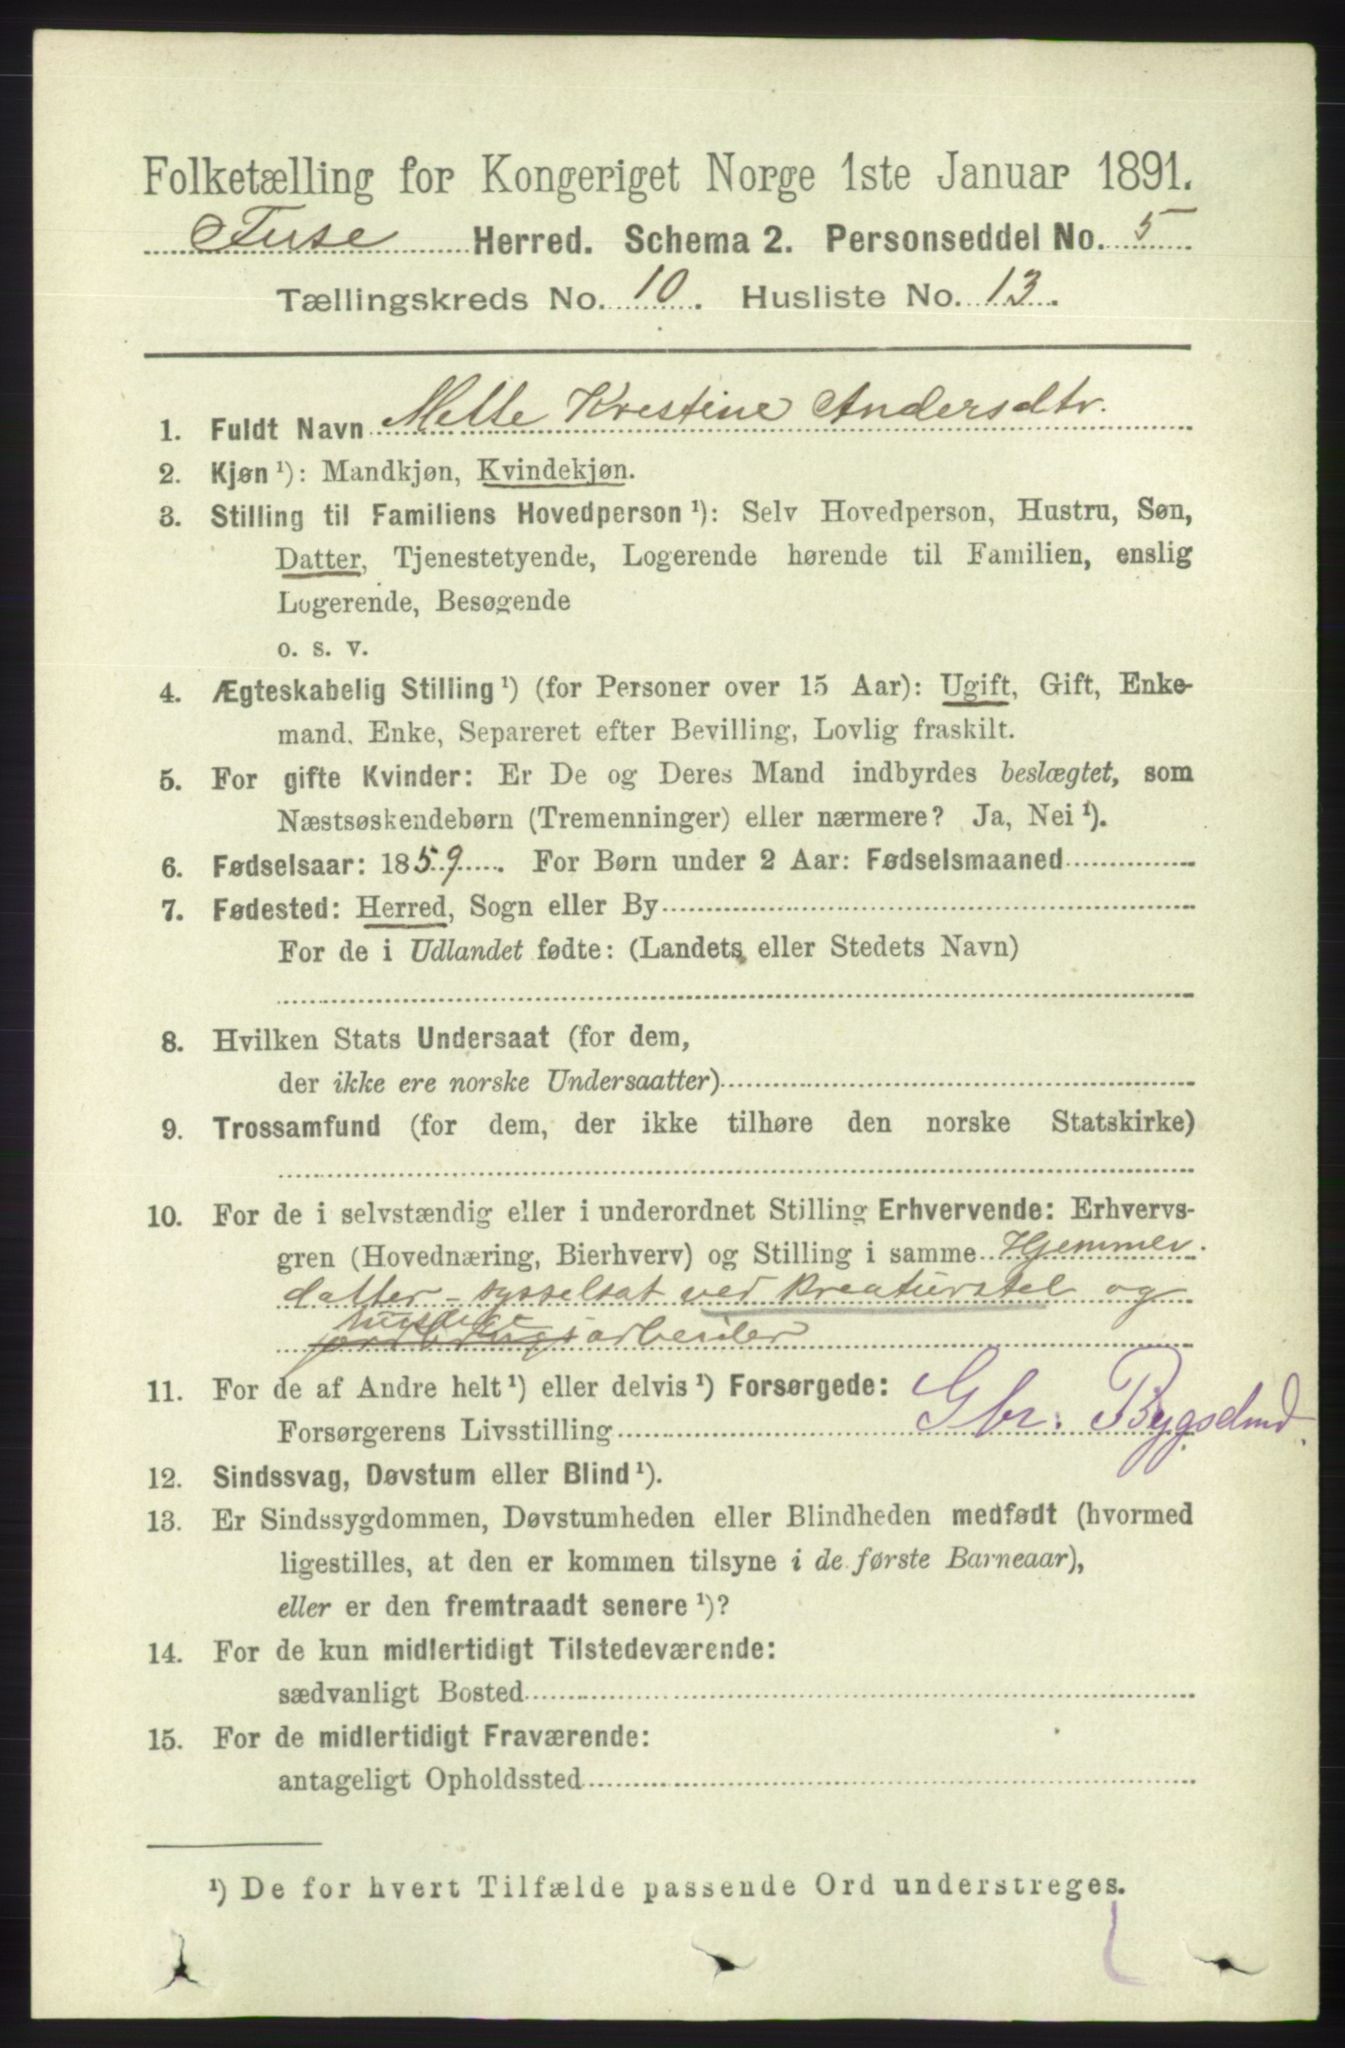 Folketælling for Kongeriget Norge 1ste Januar 1891.
Fuse Herred. Schema 2. Personseddel No. 5
Tællingskreds No. 10. Husliste No. 13.
1. Fuldt Navn Mette Krestine Andersdtr.
2. Kjøn ¹): Mandkjøn, Kvindekjøn.
3. Stilling til Familiens Hovedperson ¹): Selv Hovedperson, Hustru, Søn,
Datter, Tjenestetyende, Logerende hørende til Familien, enslig
Logerende, Besøgende
o. s. v.
4. Ægteskabelig Stilling ¹) (for Personer over 15 Aar): Ugift, Gift, Enke-
mand, Enke, Separeret efter Bevilling, Lovlig fraskilt.
5. For gifte Kvinder: Er De og Deres Mand indbyrdes beslægtet, som
Næstsøskendebørn (Tremenninger) eller nærmere? Ja, Nei ¹).
6. Fødselsaar: 1859. For Børn under 2 Aar: Fødselsmaaned
7. Fødested: Herred, Sogn eller By
For de i Udlandet fødte: (Landets eller Stedets Navn)
8. Hvilken Stats Undersaat (for dem,
der ikke ere norske Undersaatter)
9. Trossamfund (for dem, der ikke tilhøre den norske Statskirke)
10. For de i selvstændig eller i underordnet Stilling Erhvervende: Erhvervs-
gren (Hovednæring, Bierhverv) og Stilling i samme Hjemmev.
datter - sysselsat ved Kreaturstel og
huslige
jordbrugsarbeider
11. For de af Andre helt ¹) eller delvis ¹) Forsørgede:
Forsørgerens Livsstilling Gbr. Bygselmd.
12. Sindssvag, Døvstum eller Blind ¹).
13. Er Sindssygdommen, Døvstumheden eller Blindheden medfødt (hvormed
ligestilles, at den er kommen tilsyne i de første Barneaar),
eller er den fremtraadt senere ¹)?
14. For de kun midlertidigt Tilstedeværende:
sædvanligt Bosted
15. For de midlertidigt Fraværende:
antageligt Opholdssted
¹) De for hvert Tilfælde passende Ord understreges.